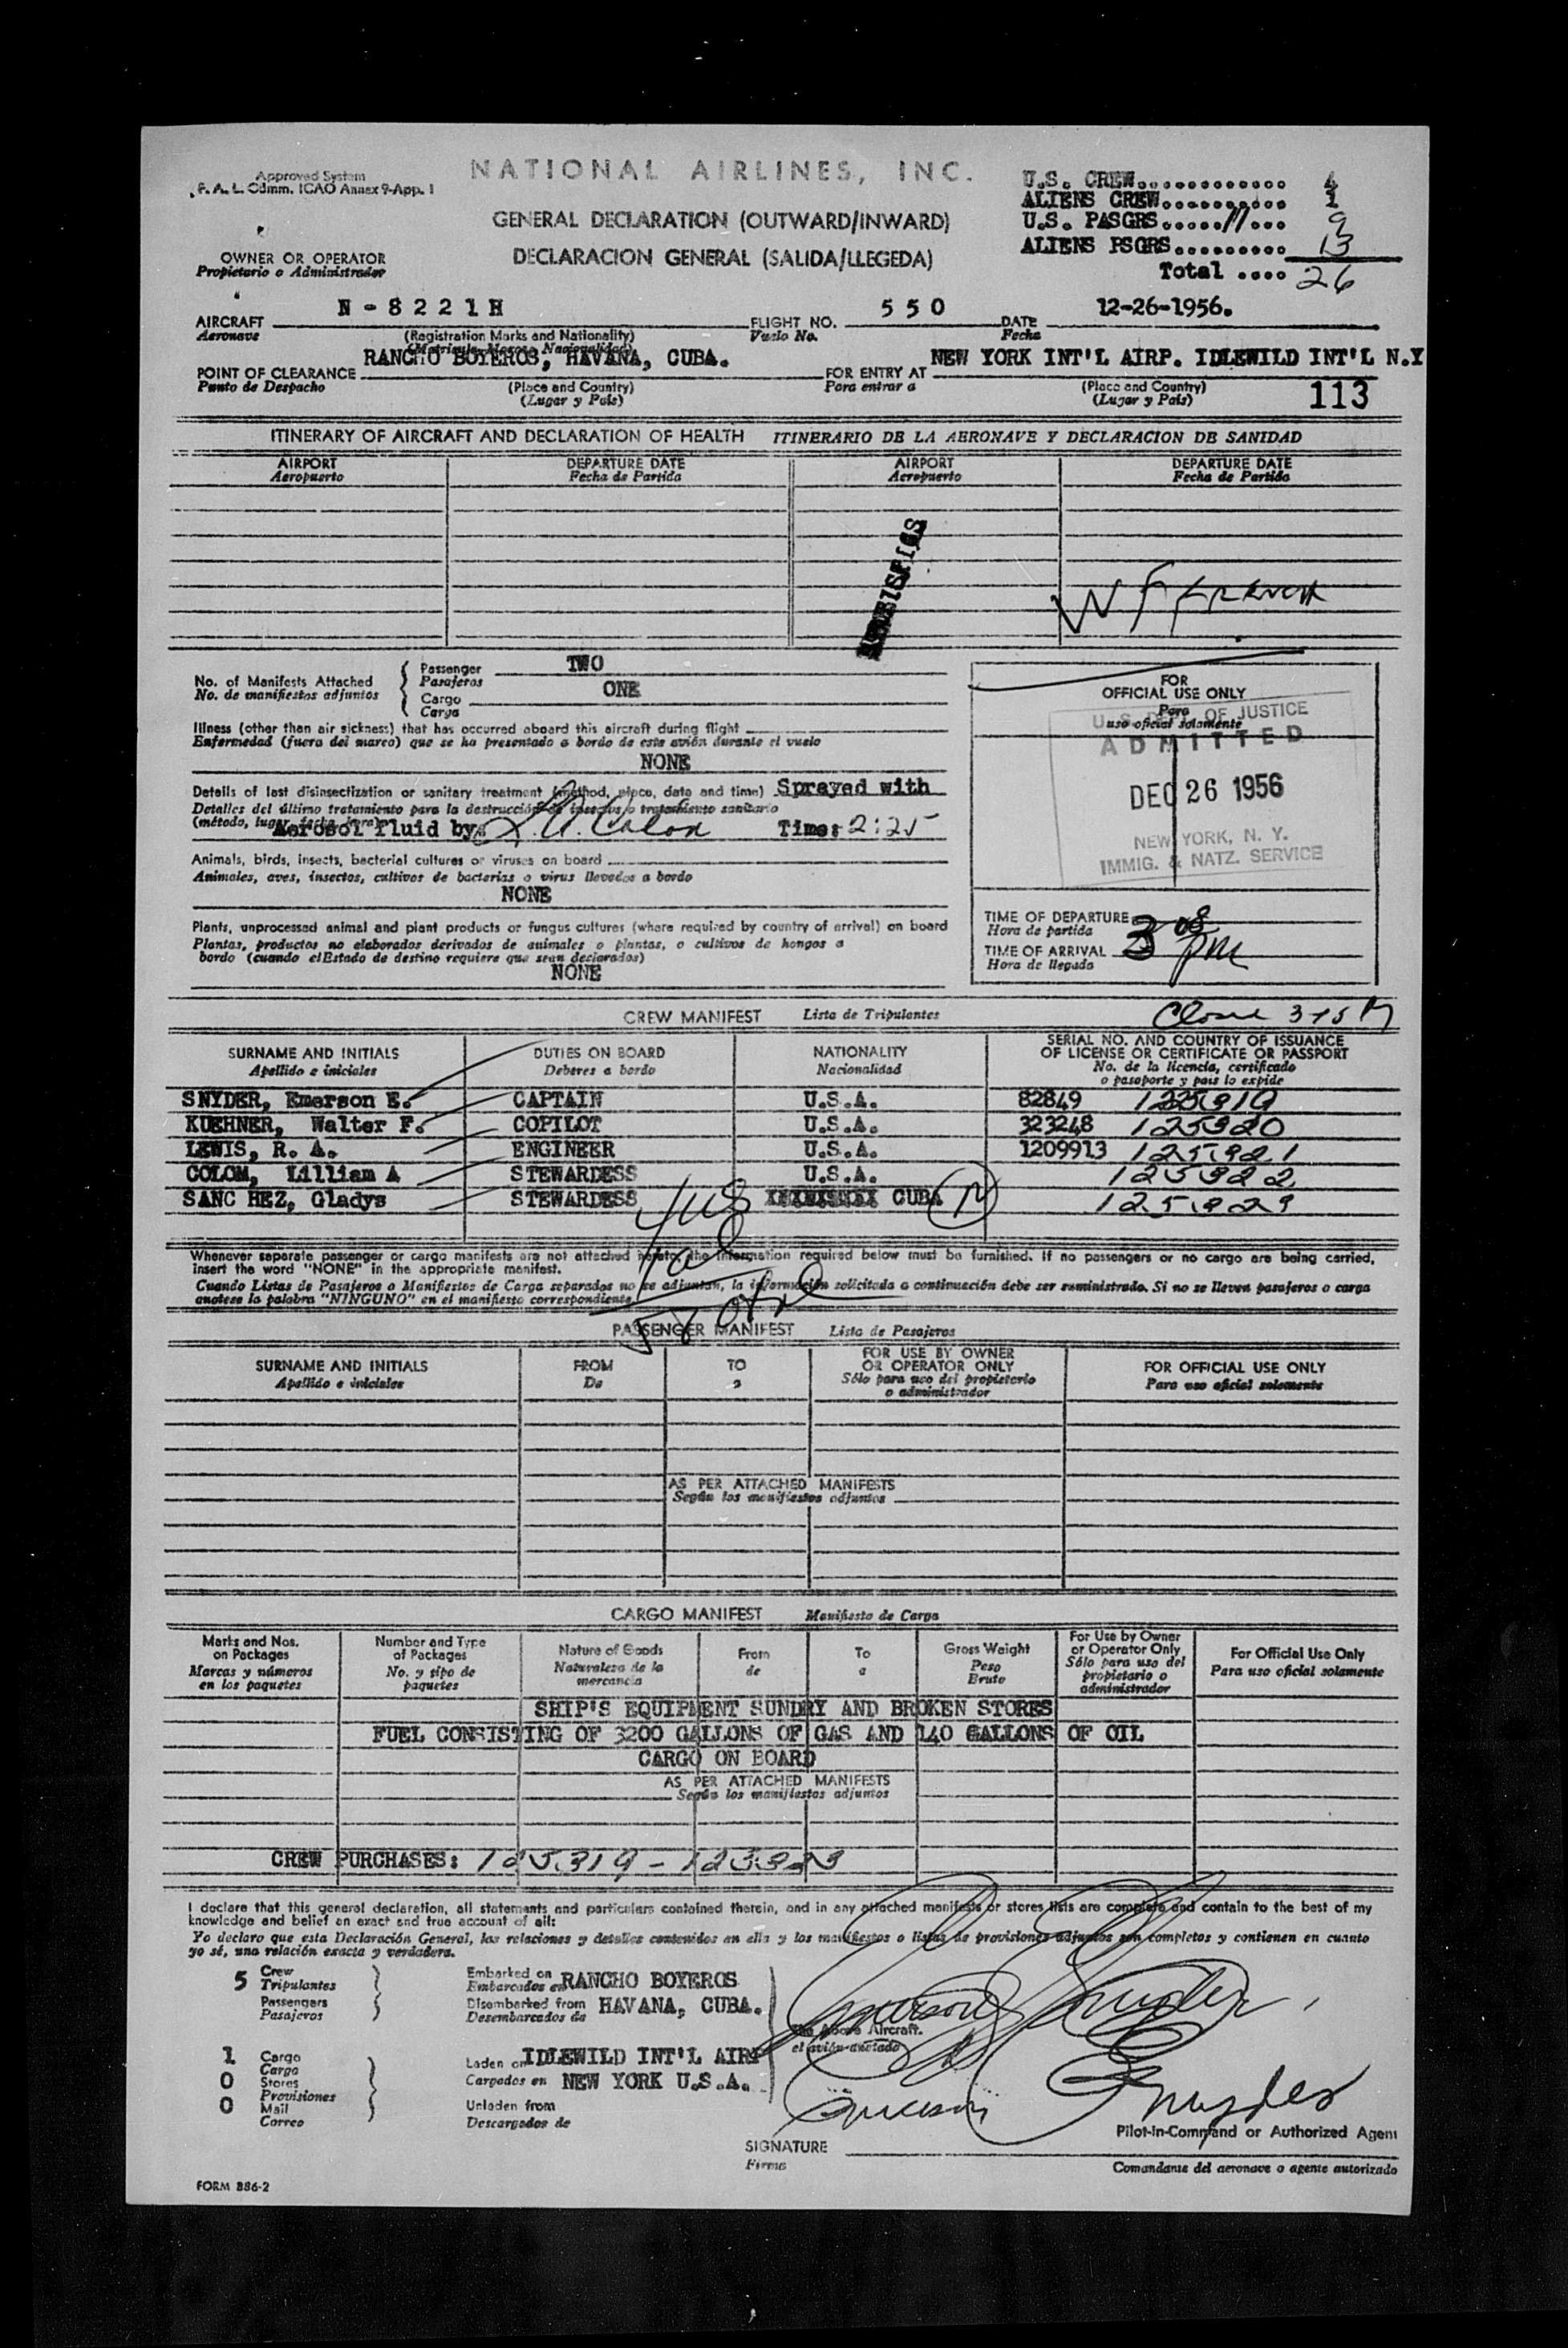 Approved System
F. A. L. Comm. ICAO Annex 9-App. 1
NATIONAL AIRLINES, INC.
GENERAL DECLARATION (OUTWARD/INWARD)
DECLARACION GENERAL (SALIDA/LLEGEDA)
U.S. CREW............ 4
ALIENS CREW.......... 1
U.S. PASGRS.....//... 9
ALIENS PSGRS......... 13
Total .... 26
OWNER OR OPERATOR
Propietario o Administrador
AIRCRAFT N-8221H FLIGHT NO. 550 DATE 12-26-1956.
Aeronave (Registration Marks and Nationality) Vuelo No. Fecha
RANCHO BOYEROS, HAVANA, CUBA. NEW YORK INT'L AIRP. IDLEWILD INT'L N.Y
POINT OF CLEARANCE FOR ENTRY AT
Punto de Despacho (Place and Country) Para entrar a (Place and Country)
(Lugar y País) (Lugar y País) 113
ITINERARY OF AIRCRAFT AND DECLARATION OF HEALTH ITINERARIO DE LA AERONAVE Y DECLARACION DE SANIDAD
AIRPORT DEPARTURE DATE AIRPORT DEPARTURE DATE
Aeropuerto Fecha de Partida Aeropuerto Fecha de Partida
No. of Manifests Attached Passenger TWO
No. de manifiestos adjuntos Pasajeros
Cargo ONE
Carga
Illness (other than air sickness) that has occurred aboard this aircraft during flight
Enfermedad (fuera del mareo) que se ha presentado a bordo de este avión durante el vuelo
NONE
Details of last disinsectization or sanitary treatment (method, place, date and time) Sprayed with
Detalles del último tratamiento para la destrucción de insectos o tratamiento sanitario
Aerosol Fluid by: Time: 2:25
Animals, birds, insects, bacterial cultures or viruses on board
Animales, aves, insectos, cultivos de bacterias o virus llevados a bordo
NONE
Plants, unprocessed animal and plant products or fungus cultures (where required by country of arrival) on board
Plantas, productos no elaborados derivados de animales o plantas, o cultivos de hongos a
bordo (cuando el Estado de destino requiere que sean declarados)
NONE
FOR
OFFICIAL USE ONLY
Para
uso oficial solamente
U.S. DEPT. OF JUSTICE
ADMITTED
DEC 26 1956
NEW YORK, N. Y.
IMMIG. & NATZ. SERVICE
TIME OF DEPARTURE
Hora de partida
TIME OF ARRIVAL 3 08 pm
Hora de llegada
CREW MANIFEST Lista de Tripulantes
SURNAME AND INITIALS DUTIES ON BOARD NATIONALITY SERIAL NO. AND COUNTRY OF ISSUANCE
OF LICENSE OR CERTIFICATE OR PASSPORT
Apellido e iniciales Deberes a bordo Nacionalidad No. de la licencia, certificado
o pasaporte y pais lo expide
SNYDER, Emerson E. CAPTAIN U.S.A. 82849 125319
KUEHNER, Walter F. COPILOT U.S.A. 323248 125320
LEWIS, R. A. ENGINEER U.S.A. 1209913 125321
COLOM, Lilliam A STEWARDESS U.S.A. 125322
SANC HEZ, Gladys STEWARDESS CUBA
Whenever separate passenger or cargo manifests are not attached hereto, the information required below must be furnished. If no passengers or no cargo are being carried,
insert the word "NONE" in the appropriate manifest.
Cuando Listas de Pasajeros o Manifiestos de Carga separados no se adjuntan, la información solicitada a continuación debe ser suministrada. Si no se lleven pasajeros o carga
anotese la palabra "NINGUNO" en el manifiesto correspondiente.
PASSENGER MANIFEST Lista de Pasajeros
SURNAME AND INITIALS FROM TO FOR USE BY OWNER
OR OPERATOR ONLY FOR OFFICIAL USE ONLY
Apellido e iniciales De a Sólo para uso del propietario
o administrador Para uso oficial solamente
AS PER ATTACHED MANIFESTS
Según los manifiestos adjuntos
CARGO MANIFEST Manifiesto de Carga
Marks and Nos.
on Packages
Marcas y números
en los paquetes
Number and Type
of Packages
No. y tipo de
paquetes
Nature of Goods
Naturaleza de la
mercancia
From
de
To
a
Gross Weight
Peso
Bruto
For Use by Owner
or Operator Only
Sólo para uso del
propietario o
administrador
For Official Use Only
Para uso oficial solamente
SHIP'S EQUIPMENT SUNDRY AND BROKEN STORES
FUEL CONSISTING OF 3200 GALLONS OF GAS AND 140 GALLONS OF OIL
CARGO ON BOARD
AS PER ATTACHED MANIFESTS
Según los manifiestos adjuntos
CREW PURCHASES:
I declare that this general declaration, all statements and particulars contained therein, and in any attached manifests or stores lists are complete and contain to the best of my
knowledge and belief an exact and true account of all:
Yo declaro que esta Declaración General, las relaciones y detalles contenidos en ella y los manifiestos o listas de provisiones adjuntos son completos y contienen en cuanto
yo sé, una relación exacta y verdadera.
5 Crew
Tripulantes
Passengers
Pasajeros
Embarked on RANCHO BOYEROS
Embarcados en
Disembarked from HAVANA, CUBA.
Desembarcados de
The Above Aircraft.
el avión anotado
1 Cargo
Carga
0 Stores
Provisiones
0 Mail
Correo
Laden on IDLEWILD INT'L AIRP
Cargados en NEW YORK U.S.A.
Unladen from
Descargados de
Emerson E Snyder
Pilot-in-Command or Authorized Agent
SIGNATURE
Firma
Comandante del aeronave o agente autorizado
FORM 886-2